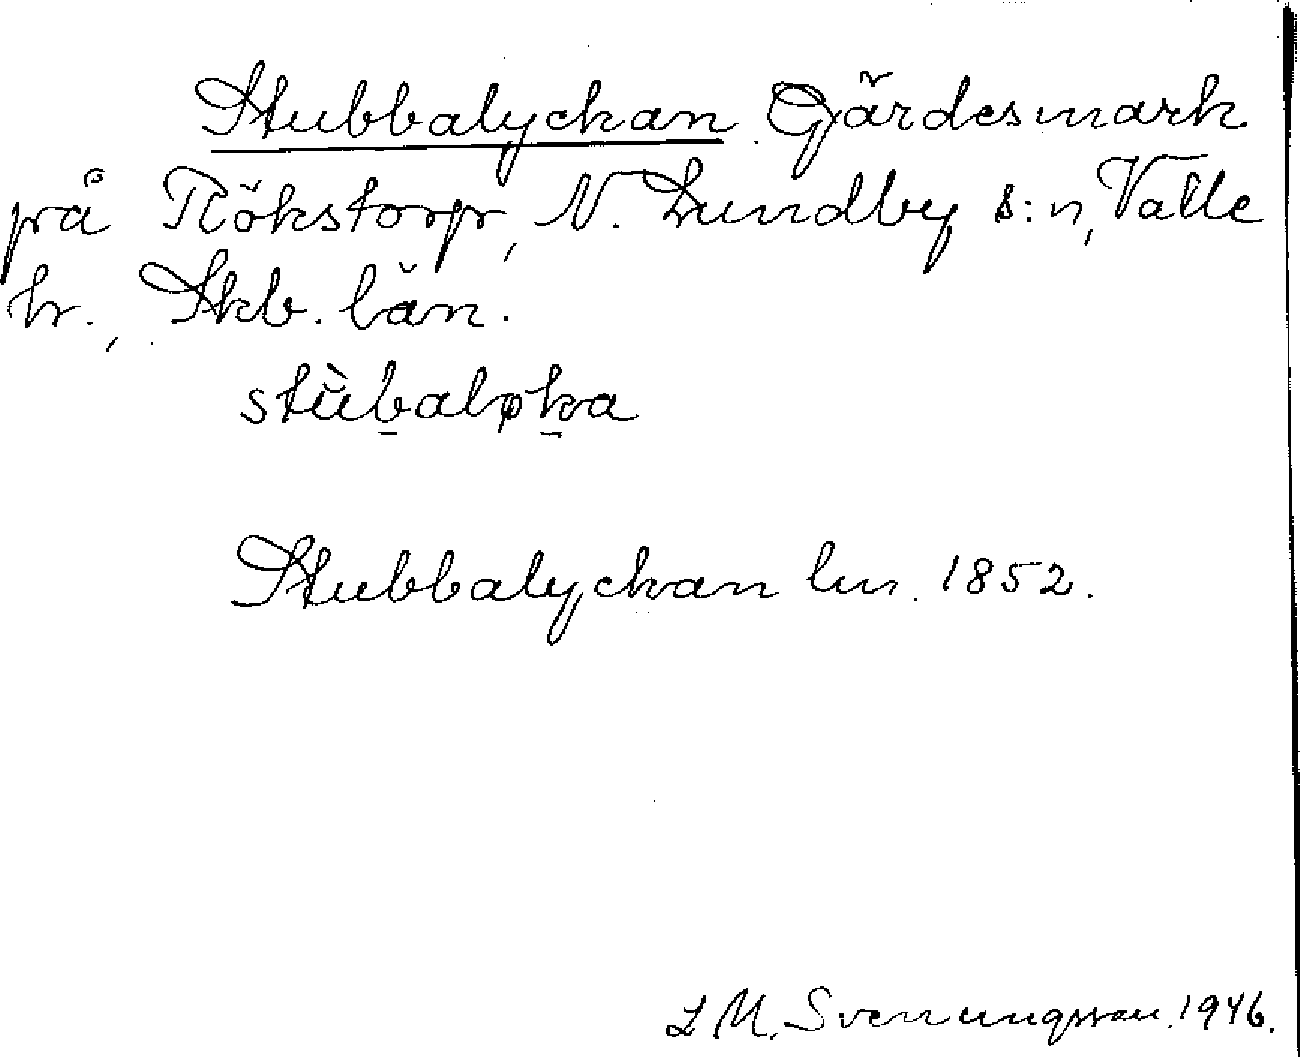 Stubbalyckan Gärdesmark
på Rökstorp, N. Lundby s:n, Valle
hr., Skb. län.
stùbaløka
Stubbalyckan lm. 1852.
L M. Svenungsson. 1946.